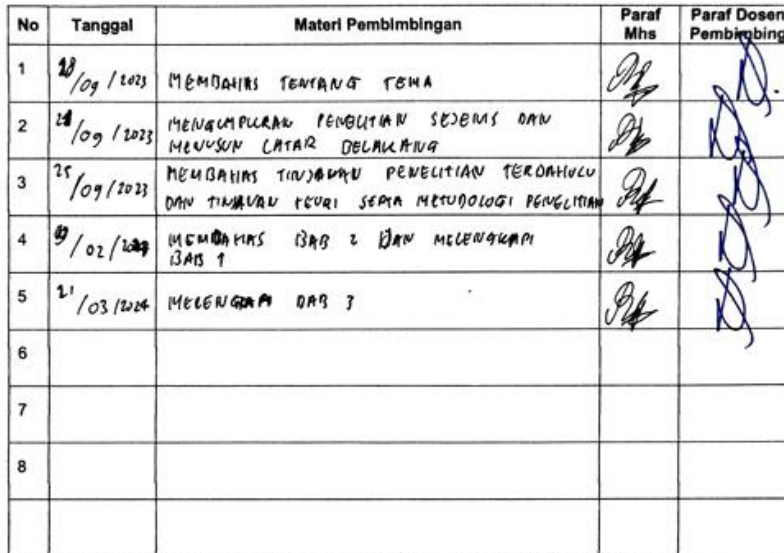 No Tanggal Materi Pembimbingan Paraf Mhs Paraf Dosen Pembimbing
1 18/09/2023 MEMBAHAS TENTANG TEMA
2 /09/2023 MENGUMPULKAN PENELITIAN SEJENIS DAN
MENYUSUN LATAR BELAKANG
3 25/09/2023 MEMBAHAS TINJAUAN PENELITIAN TERDAHULU
DAN TINJAUAN TEORI SERTA METODOLOGI PENELITIAN
4 /02/2024 MEMBAHAS BAB 2 DAN MELENGKAPI
BAB 1
5 21/03/2024 MELENGKAPI BAB 3
6
7
8